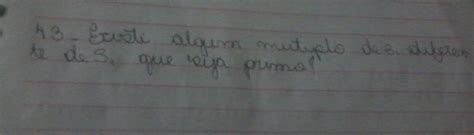 43- Existe algum mutiplo de 3. diferen
te de 3, que seja primo?